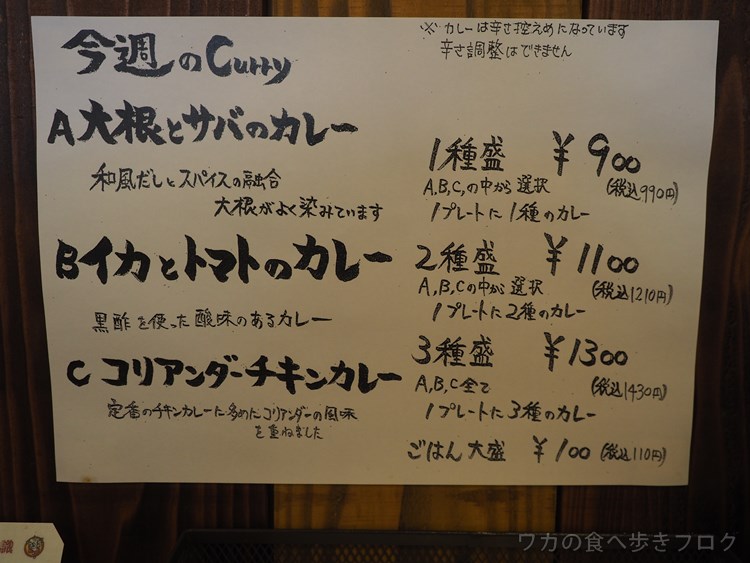 今週のCurry
※カレーは辛さ控えめになっています
辛さ調整はできません
A大根とサバのカレー
和風だしとスパイスの融合
大根がよく染みています
Bイカとトマトのカレー
黒酢を使った酸味のあるカレー
C コリアンダーチキンカレー
定番のチキンカレーに多めにコリアンダーの風味
を重ねました
1種盛 ¥900
A,B,C,の中から選択 (税込990円)
1プレートに1種のカレー
2種盛 ¥1100
A,B,Cの中から選択 (税込1210円)
1プレートに2種のカレー
3種盛 ¥1300
A,B,C全て (税込1430円)
1プレートに3種のカレー
ごはん大盛 ¥100 (税込110円)
識
ワカの食べ歩きブログ